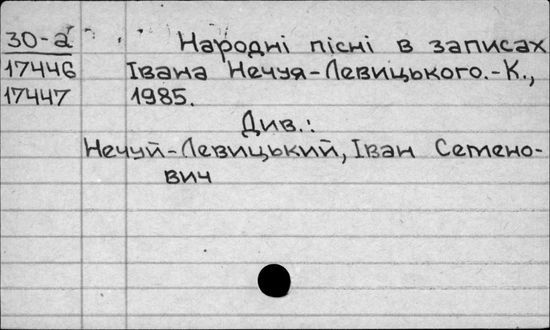 30-а Народні пісні в записах
17446 Івана Нечуя-Левицького.-К.,
17447 1985.
Див.:
Нечуй-Левицький, Іван Семено-
вич